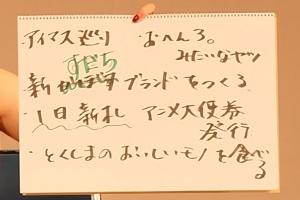 ・アイマス巡り おへんろ。
みたいなヤツ
すだち
新 ブランドをつくる
1日新札 アニメ大使券
発行
・とくしまのおいしいモノを食べ
る